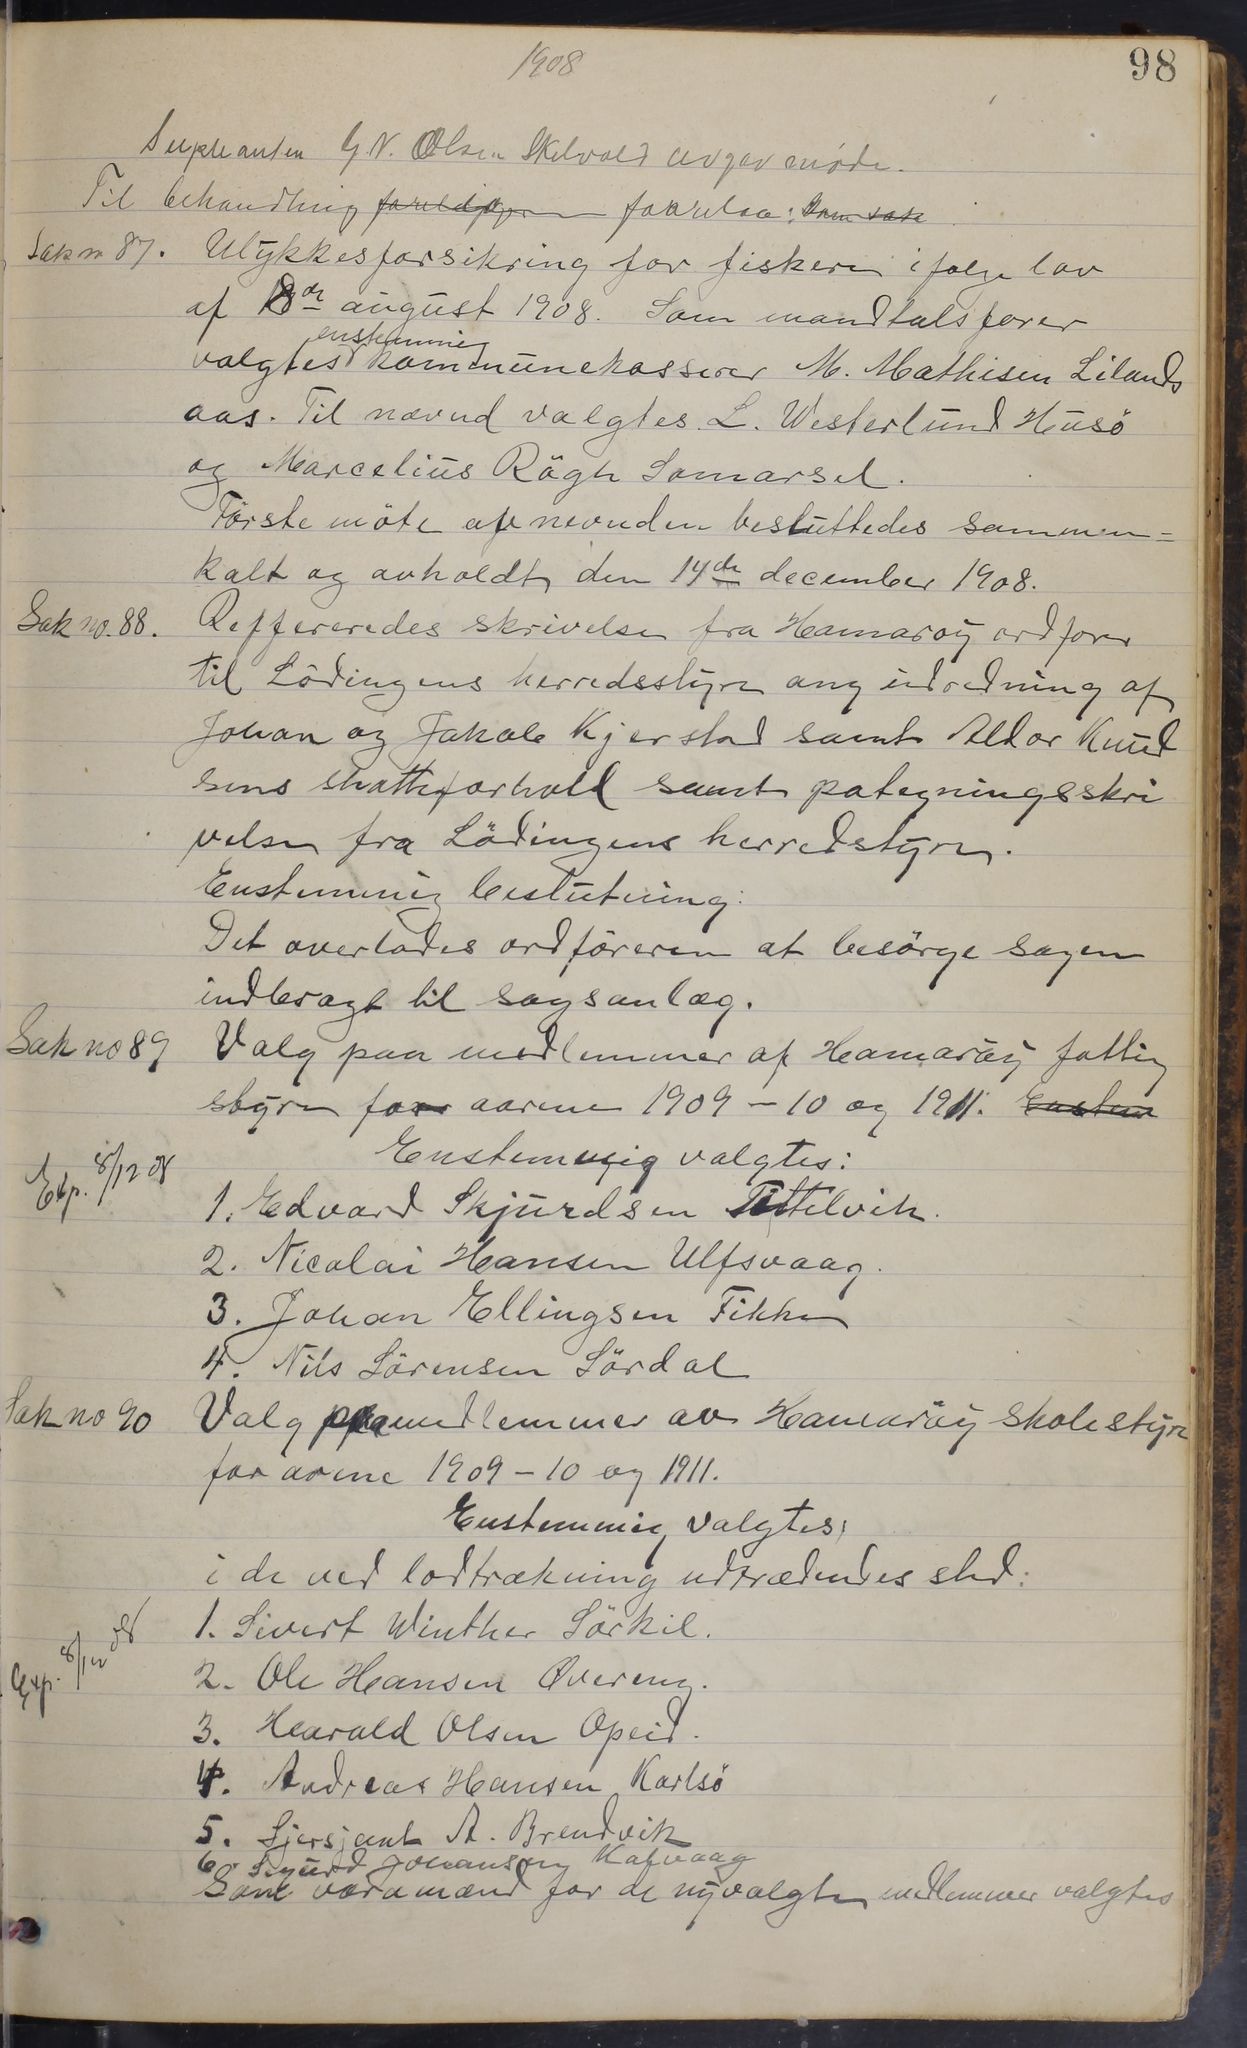 1908
98
Supleanten G. N. Olsen Skilvold avgav møde.
Til behandling forelaa: som sak
Sak no 87. Ulykkesforsikring for fiskere ifølge lov
af 8de august 1908. Som mandtalsfører
enstemmig
valgtes kommunekasserer M. Mathisen Lilands
aas. Til nævnd valgtes L. Westerlund Husö
og Marcelius Rögh Somarsel.
Förste möte af nevnden besluttedes sammen=
kalt og avholdt den 14de december 1908.
Sak no. 88. Reffereredes skrivelse fra Hamaröy ordförer
til Lödingens herredsstyre ang idredning af
Johan og Jakob Kjerstad samt Aldor Knud
sens skatteforhold samt pategningsskri
velse fra Lödingens herredstyre.
Enstemmig beslutning:
Det overlodes ordföreren at besörge sagen
indbragt til sagsanlæg.
Sak no 89 Valg paa medlemmer af Hamaröy fattig
styre for aarene 1909-10 og 1911. Enstem
Enstemmig valgtes:
Exp. 8/12 08
1. Edvard Skjurdsen Tittelvik.
2. Nicolai Hansen Ulfsvaag.
3. Johan Ellingsen Fikke
4. Nils Sörensen Sördal
Sak no 90 Valg paa medlemmer av Hamaröy skolestyre
for arene 1909-10 og 1911.
Enstemmig valgtes;
i de ved lodtrækning udtrædendes sted:
Exp. 8/12 08
1. Sivert Winther Sörkil.
2. Ole Hansen Øvereng.
3. Harald Olsen Opeid.
4. Andreas Hansen Karlsö
5. Sjersjant A. Brendvik
6. Sigurd Johansen Kafvaag
Som varamænd for de nyvalgte medlemmer valgtes